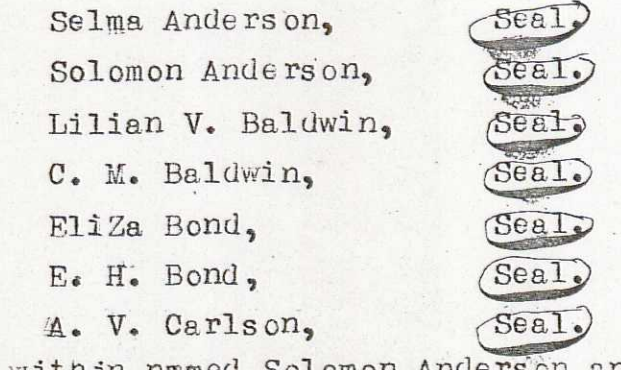 Selma Anderson, Seal.
Solomon Anderson, Seal.
Lilian V. Baldwin, Seal.
C. M. Baldwin, Seal.
EliZa Bond, Seal.
E. H. Bond, Seal.
A. V. Carlson, Seal.
within nmmed Solomon Anderson an